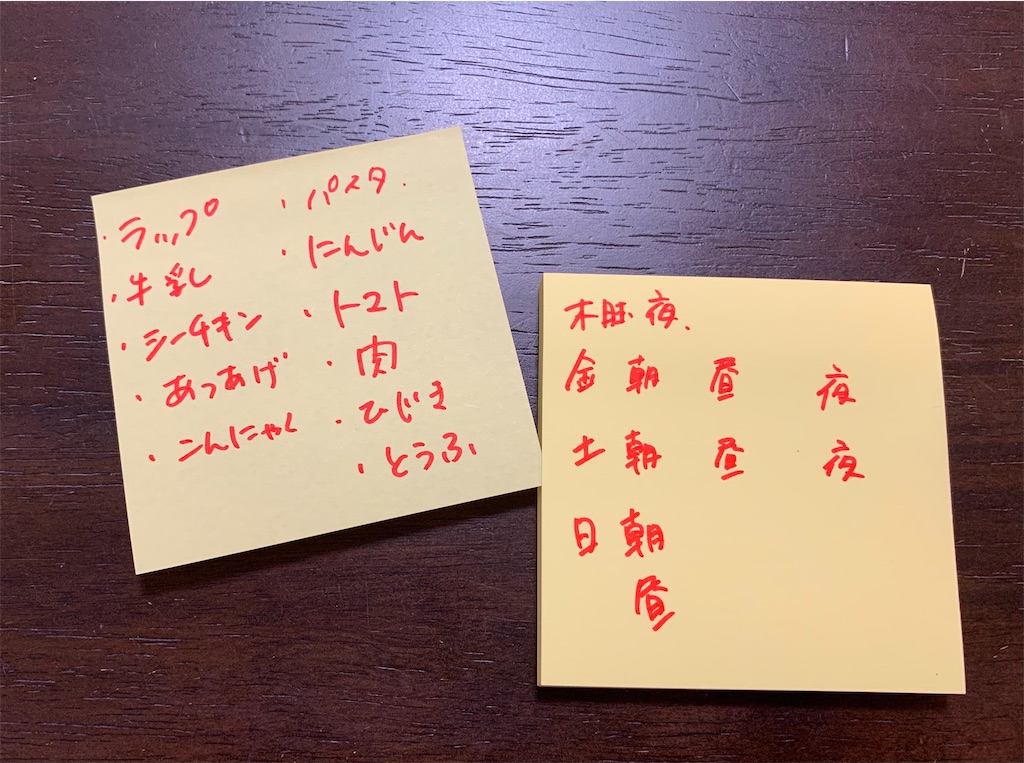 ・ラップ
・牛乳
・シーチキン
・あつあげ
・こんにゃく
・パスタ.
・にんじん
・トマト
・肉
・ひじき
・とうふ
木 夜.
金 朝 昼 夜
土 朝 昼 夜
日 朝
昼